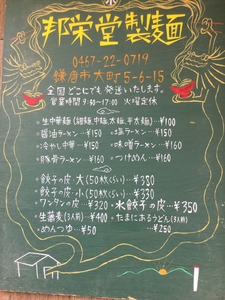 邦栄堂製麺
0467-22-0719
鎌倉市大町5-6-15
全国どこにでも発送いたします。
営業時間 9:30~17:00 火曜定休
○生中華麺(細麺,中麺,太麺,平太麺)…¥100
○醤油ラーメン…¥150 ○塩ラーメン…¥150
○冷やし中華…¥150 ○味噌ラーメン…¥160
○豚骨ラーメン…¥160 ○つけめん…¥160
○餃子の皮・大(50枚くらい)…¥330
○餃子の皮・小(50枚くらい)…¥320
○ワンタンの皮…¥320 ○水餃子の皮…¥350
○生蕎麦(3人前)…¥400 ○たまにあるうどん(3人前)
○めんつゆ…¥50 …¥250